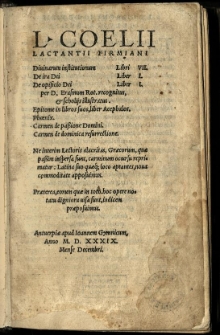 L. COELII
LACTANTII FIRMIANI
Diuinarum institutionum Libri VII.
De ira Dei Liber I.
De opificio Dei Liber I.
per D. Erasmum Rot. recognitus,
& scholijs illustratus.
Epitome in libros suos, liber Acephalos.
Phoenix.
Carmen de passione Domini.
Carmen de dominica resurrectione.
Ne interim Lectoris alacritas, Græcorum, quæ
passim inspersa sunt, carminum occursu repri
matur: Latina suo quæq; loco aptauit, noua
commoditate apposuimus.
Præterea, eorum quæ in toto hoc opere no-
tatu digniora uisa sunt, indicem
præposuimus.
Antuerpiæ apud Ioannem Gymnicum,
Anno M. D. XXXIX.
Mense Decembri.